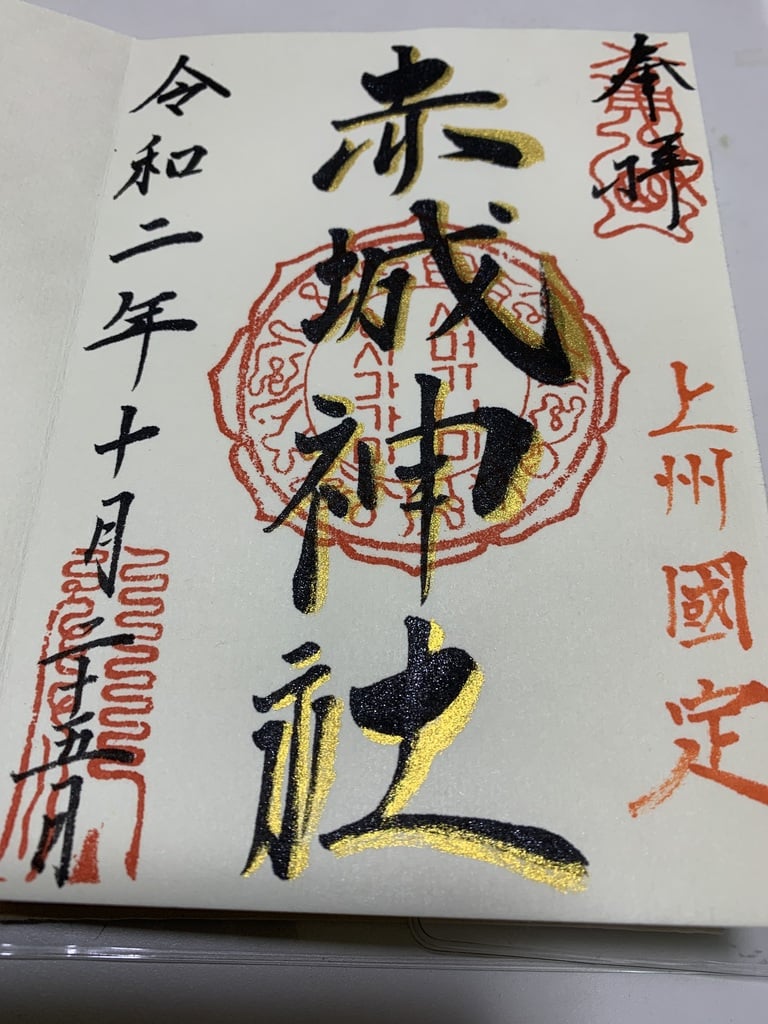 奉拝
上州國定
赤城神社
令和二年十月二十五月